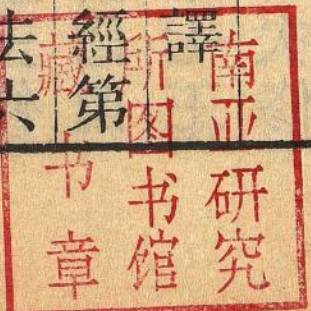 譯
經第
法六
南亚研究
所图书馆
藏书章